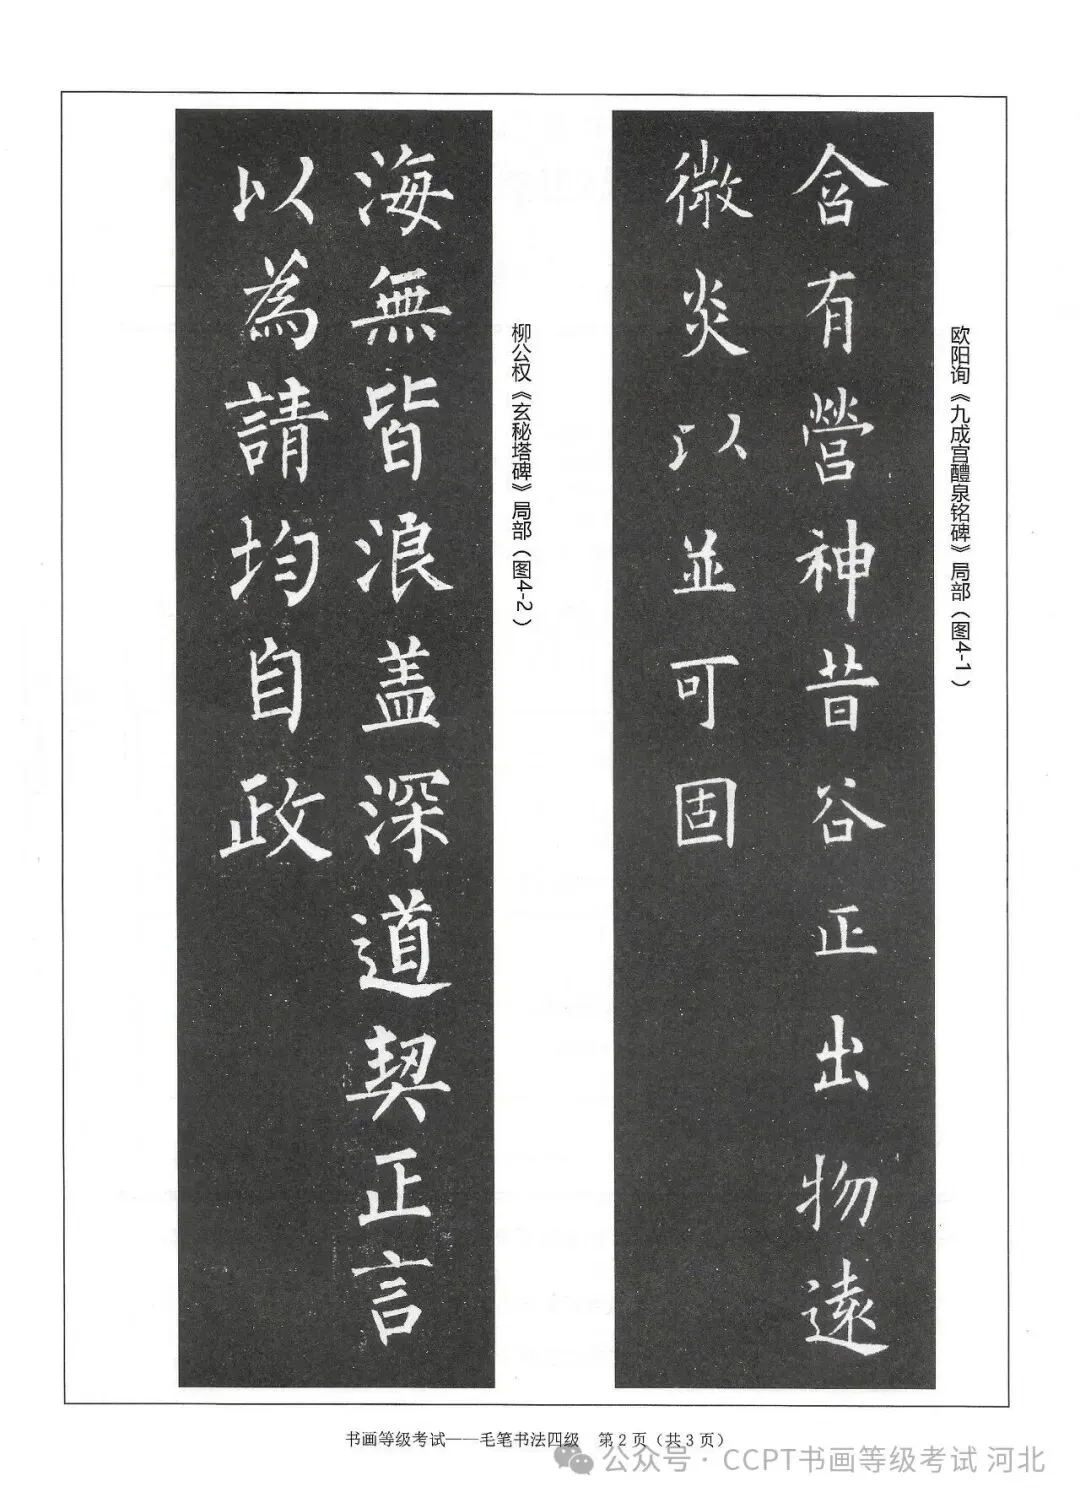 欧阳询《九成宫醴泉铭碑》局部（图4-1）
含有營神昔谷正出物遠
微炎以並可固
柳公权《玄秘塔碑》局部（图4-2）
海無皆浪盖深道契正言
以為請均自政
书画等级考试——毛笔书法四级 第2页（共3页）
公众号·CCPT书画等级考试 河北